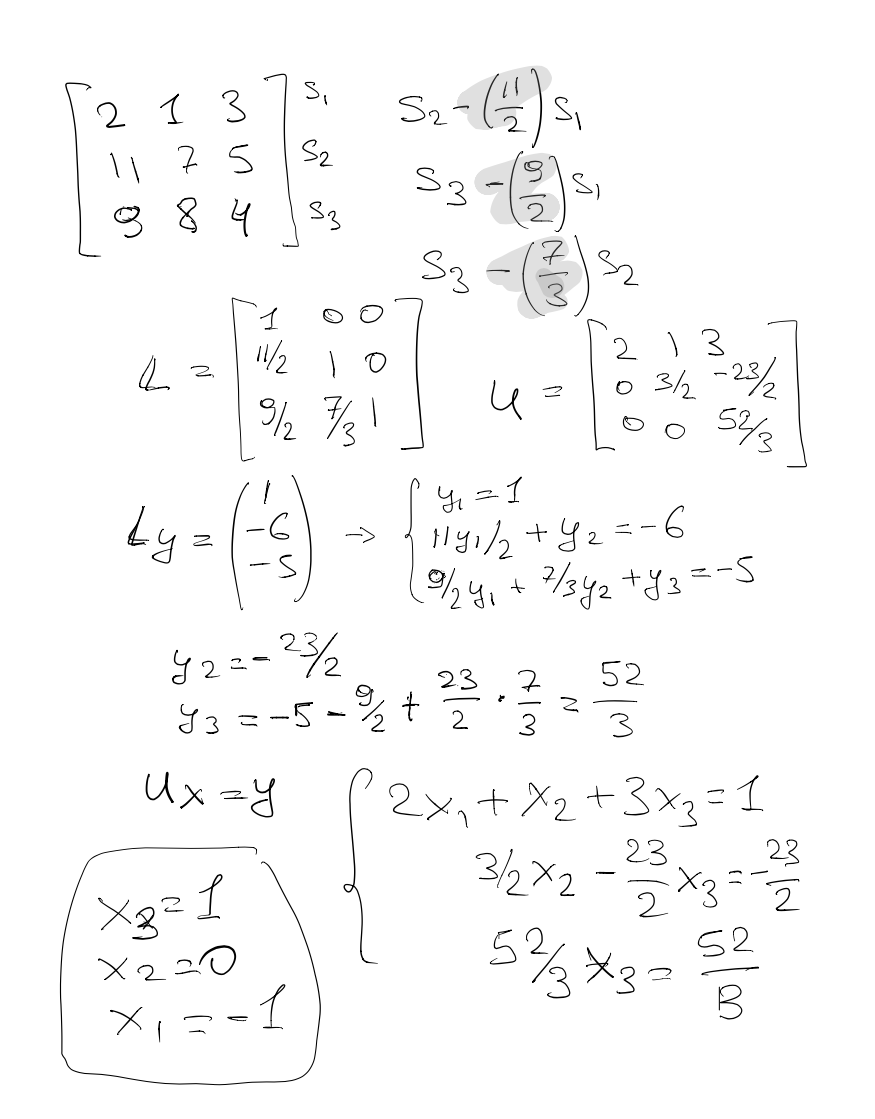 [2 1 3] S₁
[11 7 5] S₂
[9 8 4] S₃
S₂ - (11/2) S₁
S₃ - (9/2) S₁
S₃ - (7/3) S₂
L = [1 0 0
11/2 1 0
9/2 7/3 1]
U = [2 1 3
0 3/2 -23/2
0 0 52/3]
Ly = (1
-6
-5) → { y₁ = 1
11y₁/2 + y₂ = -6
9/2y₁ + 7/3y₂ + y₃ = -5
y₂ = - 23/2
y₃ = -5 - 9/2 + 23/2 · 7/3 = 52/3
Ux = y
{ 2x₁ + x₂ + 3x₃ = 1
3/2x₂ - 23/2 x₃ = -23/2
52/3 x₃ = 52/3
x₃ = 1
x₂ = 0
x₁ = -1